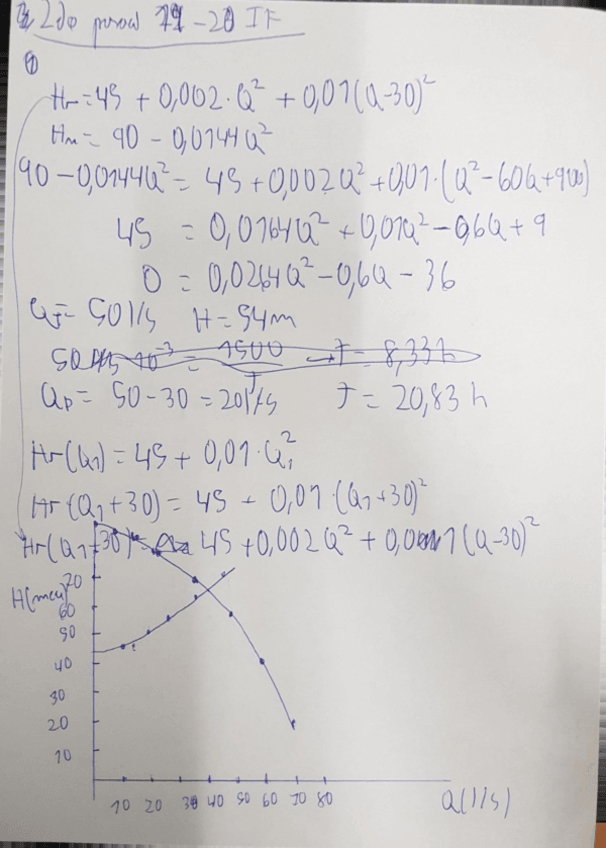 2do parcial 19-20 IF
①
Hr = 45 + 0,002·Q² + 0,01(Q-30)²
Hm = 90 - 0,0144Q²
90 - 0,0144Q² = 45 + 0,002Q² + 0,01·(Q² - 60Q + 900)
45 = 0,0164Q² + 0,01Q² - 0,6Q + 9
0 = 0,0264Q² - 0,6Q - 36
QJ = 50 l/s H = 54m
= 1500 → T = 8,33h
QP = 50 - 30 = 20 l/s T = 20,83 h
Hr(Q1) = 45 + 0,01·Q1²
Hr(Q1+30) = 45 + 0,01·(Q1+30)²
Hr(Q1+30) = 45 + 0,002Q² + 0,01(Q-30)²
H(mca)
70
60
50
40
30
20
10
10 20 30 40 50 60 70 80
Q(l/s)